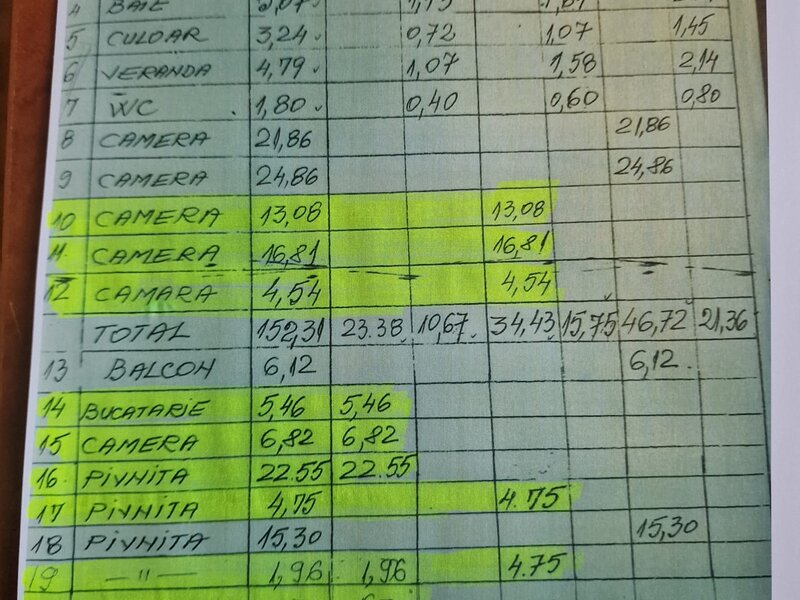 4 BAIE
5 CULOAR 3,24 0,72 1,07 1,45
6 VERANDA 4,79 1,07 1,58 2,14
7 WC 1,80 0,40 0,60 0,80
8 CAMERA 21,86 21,86
9 CAMERA 24,86 24,86
10 CAMERA 13,08 13,08
11 CAMERA 16,81 16,81
12 CAMARA 4,54 4,54
TOTAL 152,31 23.38 10,67 34,43 15,75 46,72 21,36
13 BALCON 6,12 6,12
14 BUCATARIE 5,46 5,46
15 CAMERA 6,82 6,82
16 PIVNITA 22.55 22.55
17 PIVNITA 4,75 4.75
18 PIVNITA 15,30 15,30
19 — " — 1,96 1,96 4.75